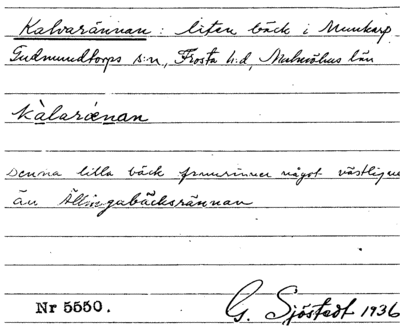 Kalvarännan: liten bäck i Munkarp,
Gudmundtorps s:n, Frosta h:d, Malmöhus län
kàlaræ̀nan
Denna lilla bäck framrinner något västligare
än Ällingabäcksrännan
Nr 5550.
G. Sjöstedt 1936